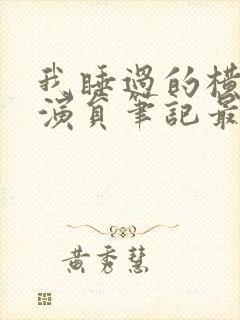 我睡過的橫
演員筆記最
黃秀慧